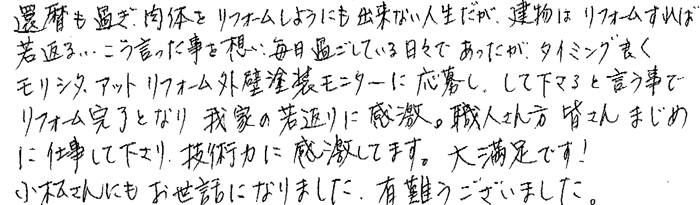 還暦も過ぎ、肉体をリフォームしようにも出来ない人生だが、建物はリフォームすれば
若返る…こう言った事を想い、毎日過ごしている日々であったが、タイミング良く
モリシタ.アットリフォーム外壁塗装モニターに応募し、して下さると言う事で
リフォーム完了となり 我家の若返りに感激。職人さん方 皆さん まじめ
に仕事して下さり、技術力に感激してます。大満足です!
小松さんにもお世話になりました、有難うございました。